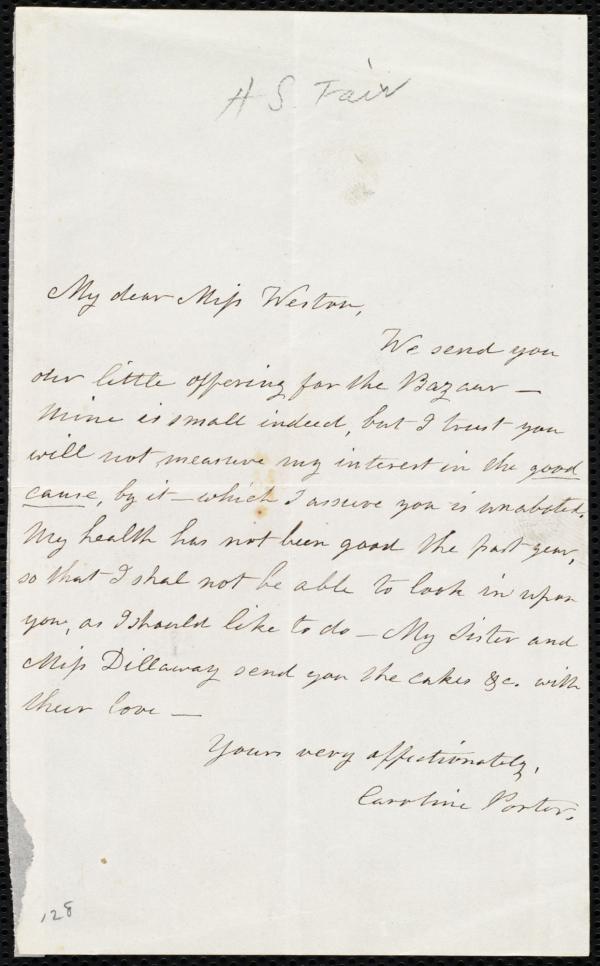 A S Fair
My dear Miss Weston,
We send you
our little offering for the Bazaar —
Mine is small indeed, but I trust you
will not measure my interest in the good
cause, by it — which I assure you is unabated.
My health has not been good the past year,
so that I shal not be able to look in upon
you, as I should like to do — My Sister and
Miss Dillaway send you the cakes &c. with
their love —
Yours very affectionately,
Caroline Porter.
128